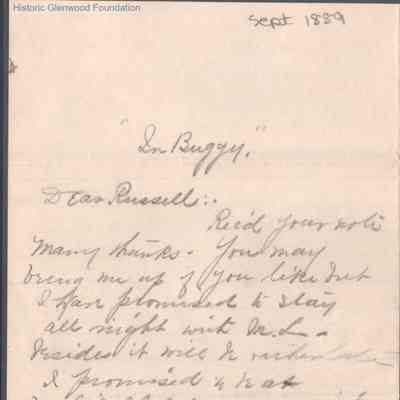 Historic Glenwood Foundation
Sept 1889
"In Buggy."
Dear Russell:.
Rec'd your note
Many thanks. You may
bring me up if you like but
I have promised to stay
all night with M.L.
Besides it will be rather late
I promised to be at